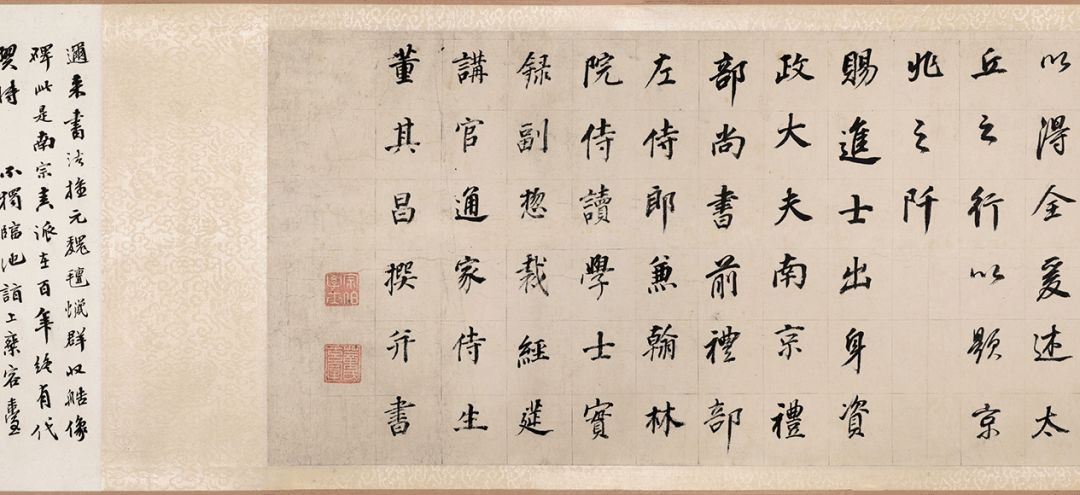 以得全爰述太
丘之行以題京
兆之阡
賜進士出身資
政大夫南京禮
部尚書前禮部
左侍郎兼翰林
院侍讀學士實
録副惣裁經筵
講官通家侍生
董其昌撰并書
宗伯學士
邇来書法擅元魏氊蠟群収皓像
碑此是南宗真派在百年終有代
興時 不獨臨池詣上乘容臺